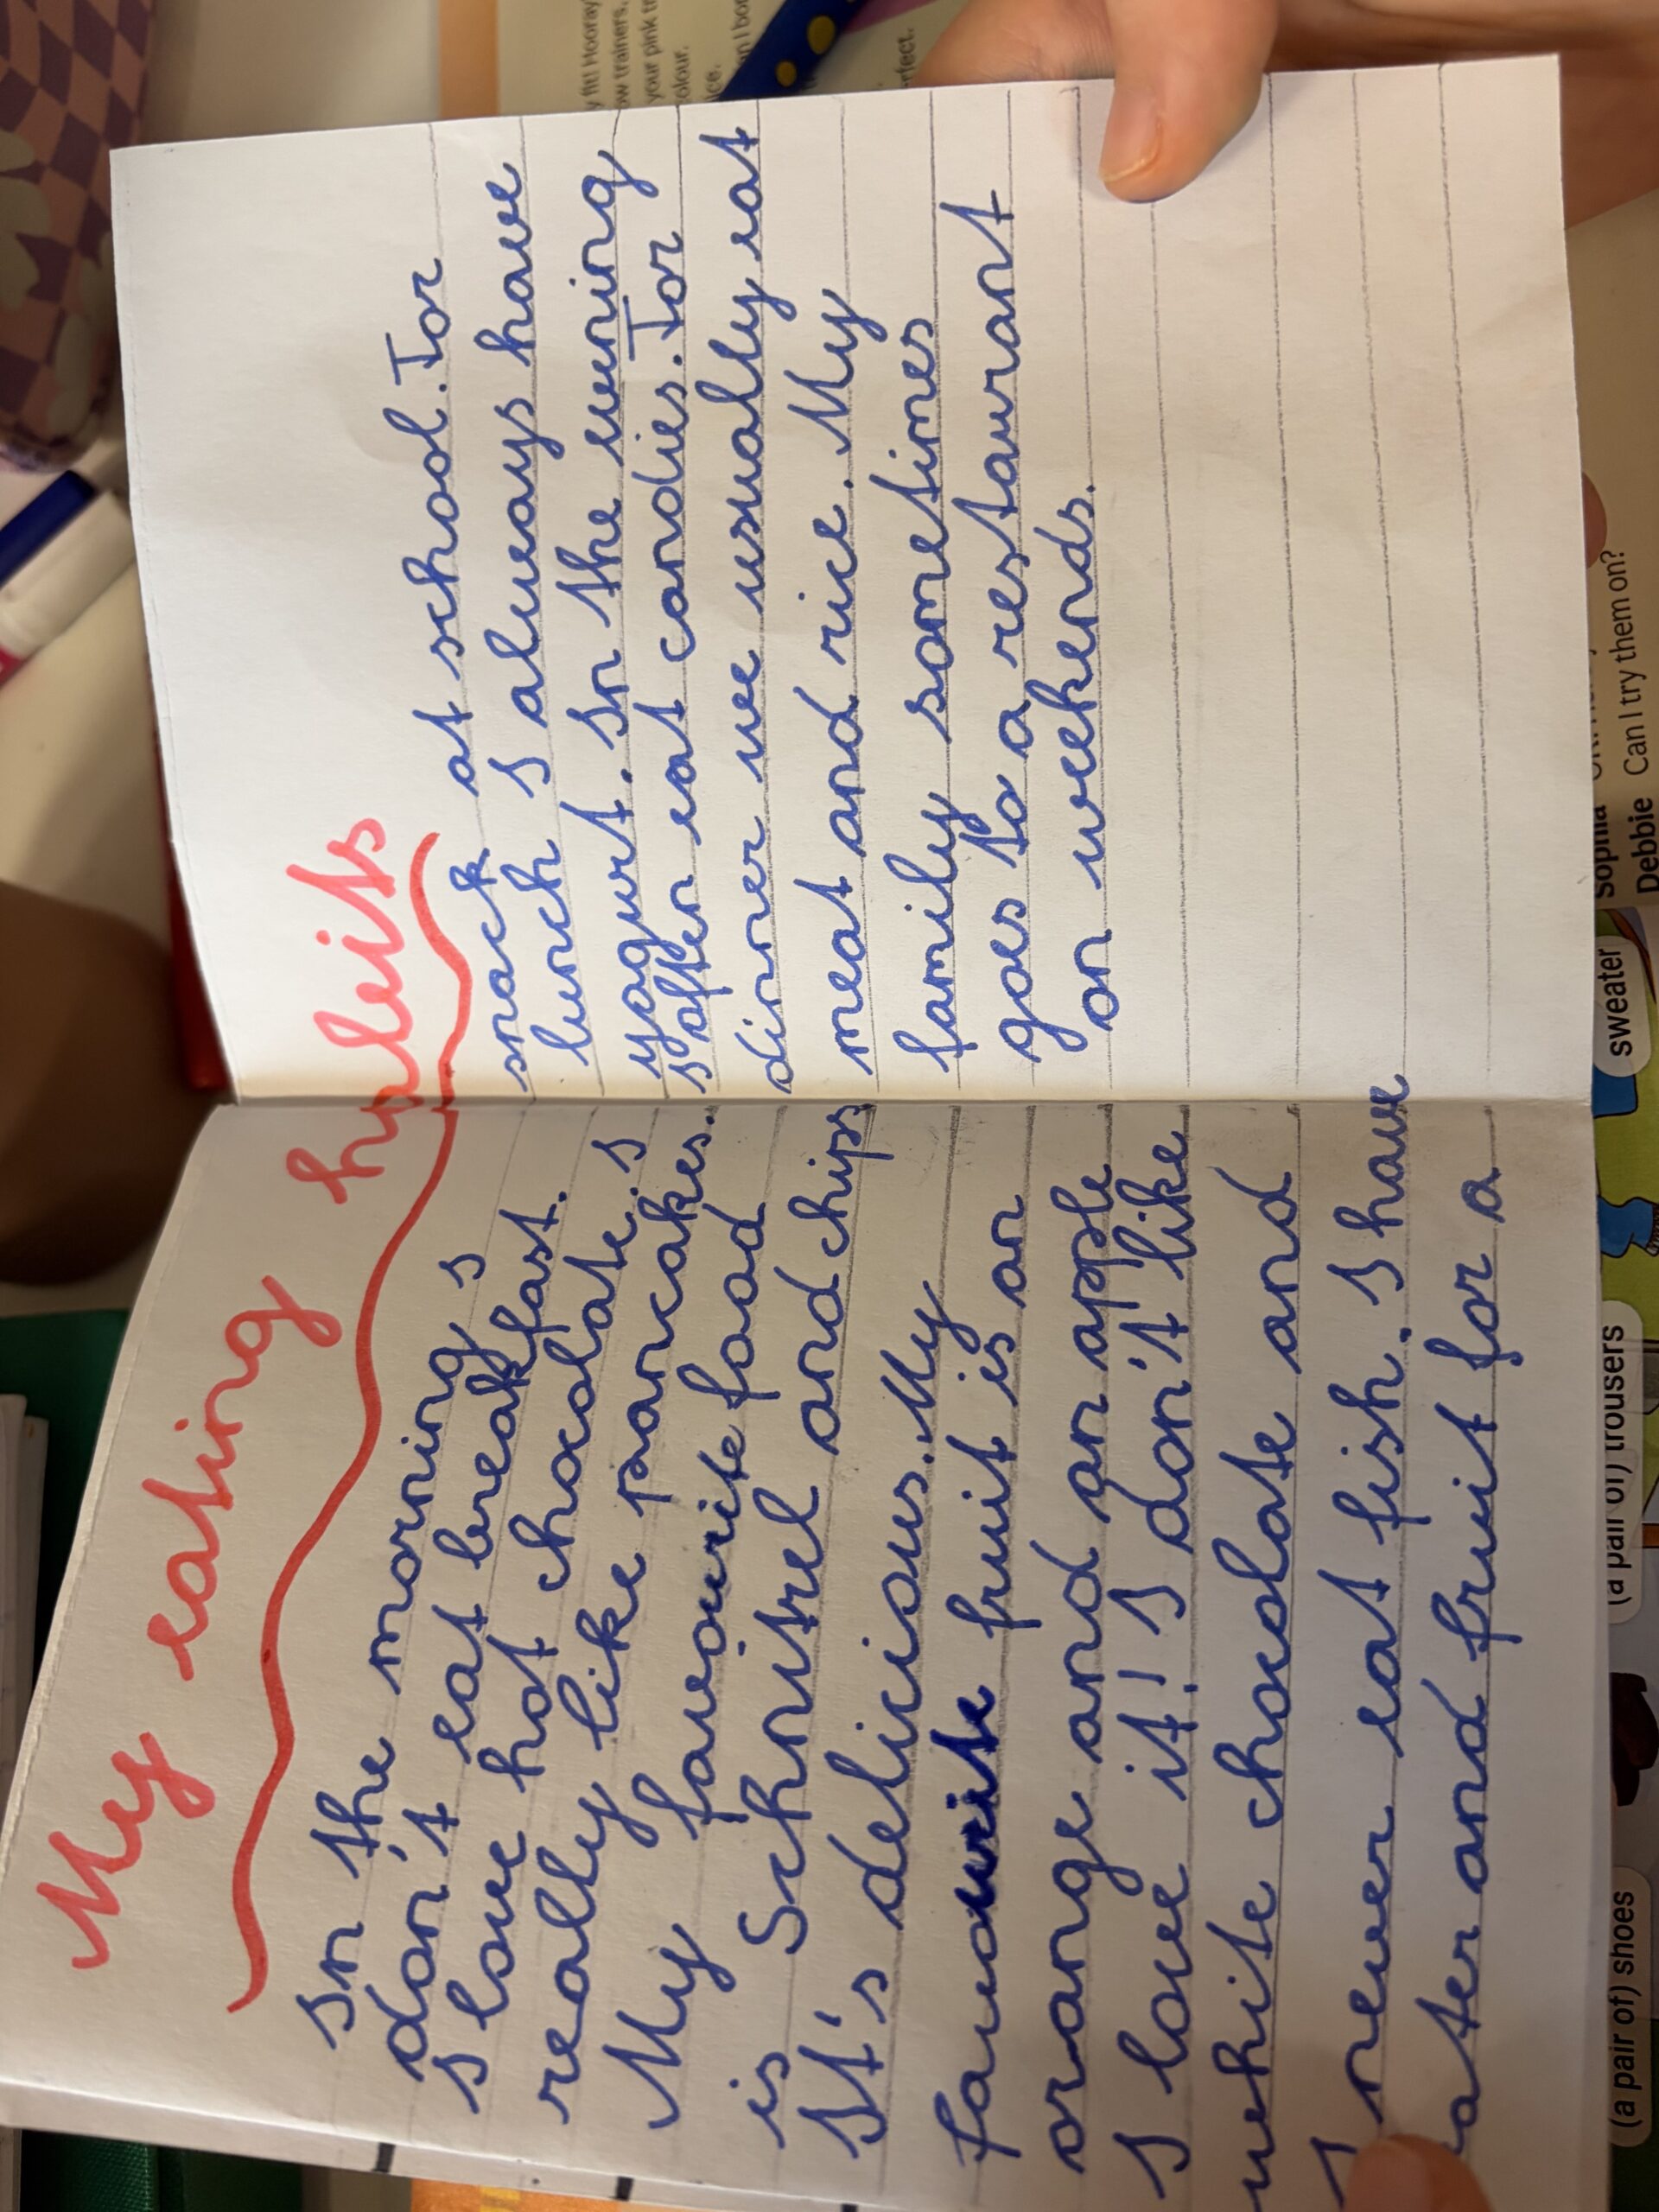 My eating hpleits
In the morning I
don't eat breakfast.
I love hot chocolate. I
really like pancakes.
My favourite food
is Schnitzel and chips
It's delicious. My
favourite fruit is an
orange and an apple
I love it! I don't like
white chocolate and
I never eat fish. I have
water and fruit for a
snack at school. For
lunch I always have
yogurt. In the evening
I often eat candies. For
dinner we usually eat
meat and rice. My
family sometimes
goes to a restaurant
on weekends.
(a pair of) shoes
(a pair of) trousers
sweater
Sophia
Debbie Can I try them on?
y fit! Hooray
ow trainers.
your pink tr
olour.
ice.
an I bor
rfect.